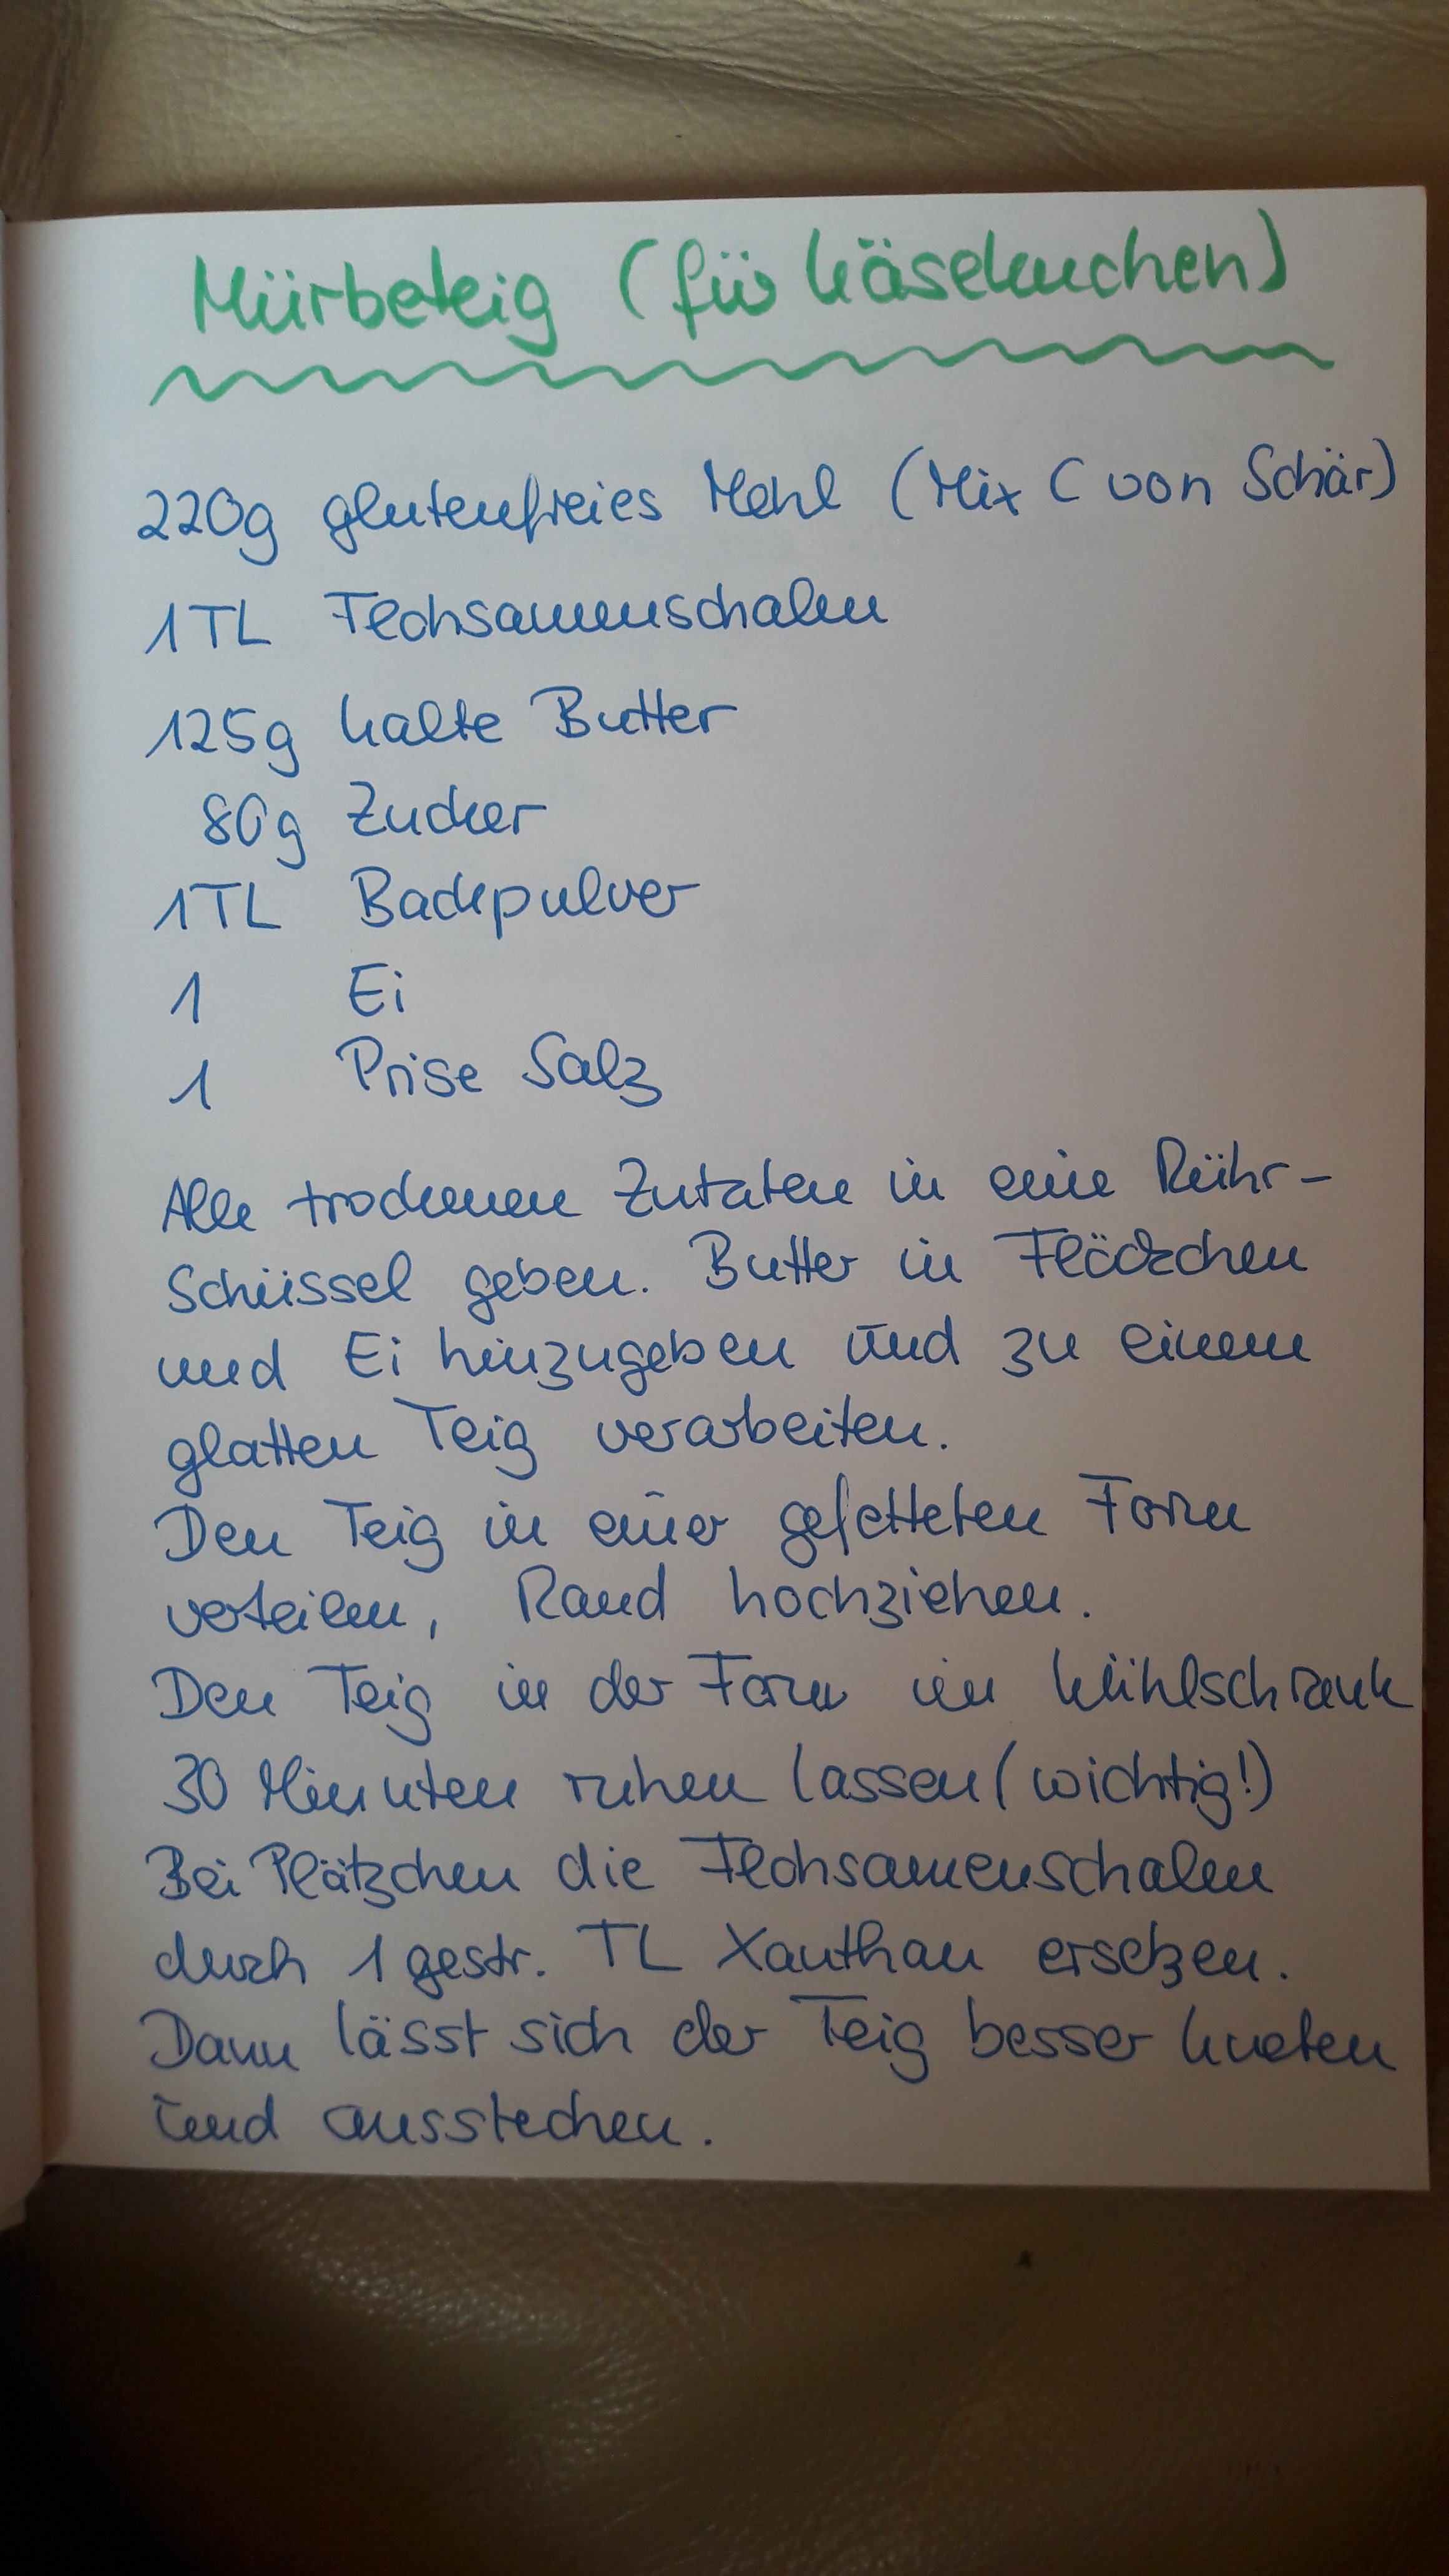 Mürbeteig (für Käsekuchen)
220g glutenfreies Mehl (Mix C von Schär)
1TL Flohsamenschalen
125g kalte Butter
80g Zucker
1TL Backpulver
1 Ei
1 Prise Salz
Alle trockenen Zutaten in eine Rühr-
Schüssel geben. Butter in Flöckchen
und Ei hinzugeben und zu einem
glatten Teig verarbeiten.
Den Teig in einer gefetteten Form
verteilen, Rand hochziehen.
Den Teig in der Form im Kühlschrank
30 Minuten ruhen lassen (wichtig!)
Bei Plätzchen die Flohsamenschalen
durch 1 gestr. TL Xanthan ersetzen.
Dann lässt sich der Teig besser kneten
und ausstechen.